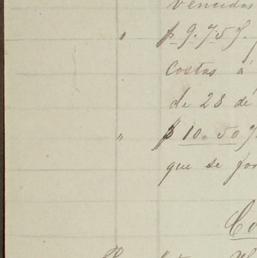 vencidas
" $ 9.757.
costas á
de 23 de
" $ 10.507
que se for
Co